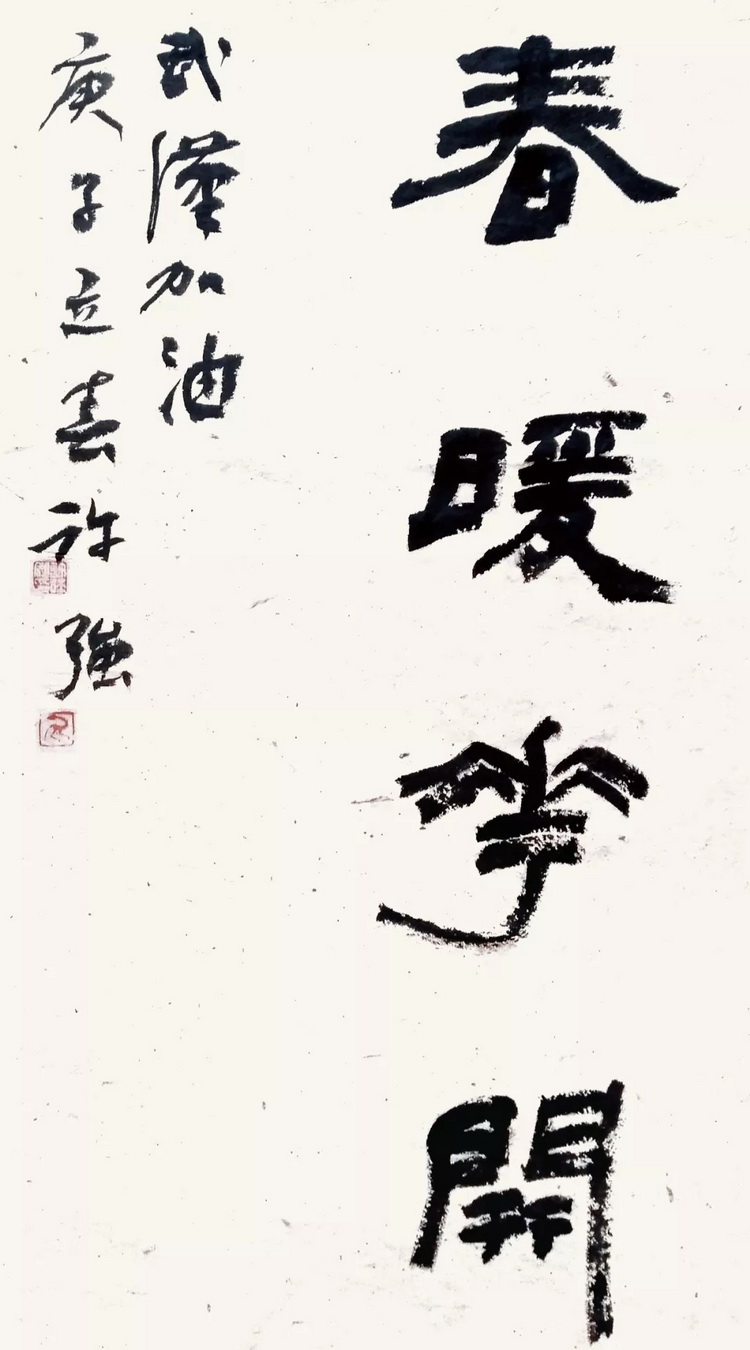 春暖華開
武漢加油
庚子立春許強